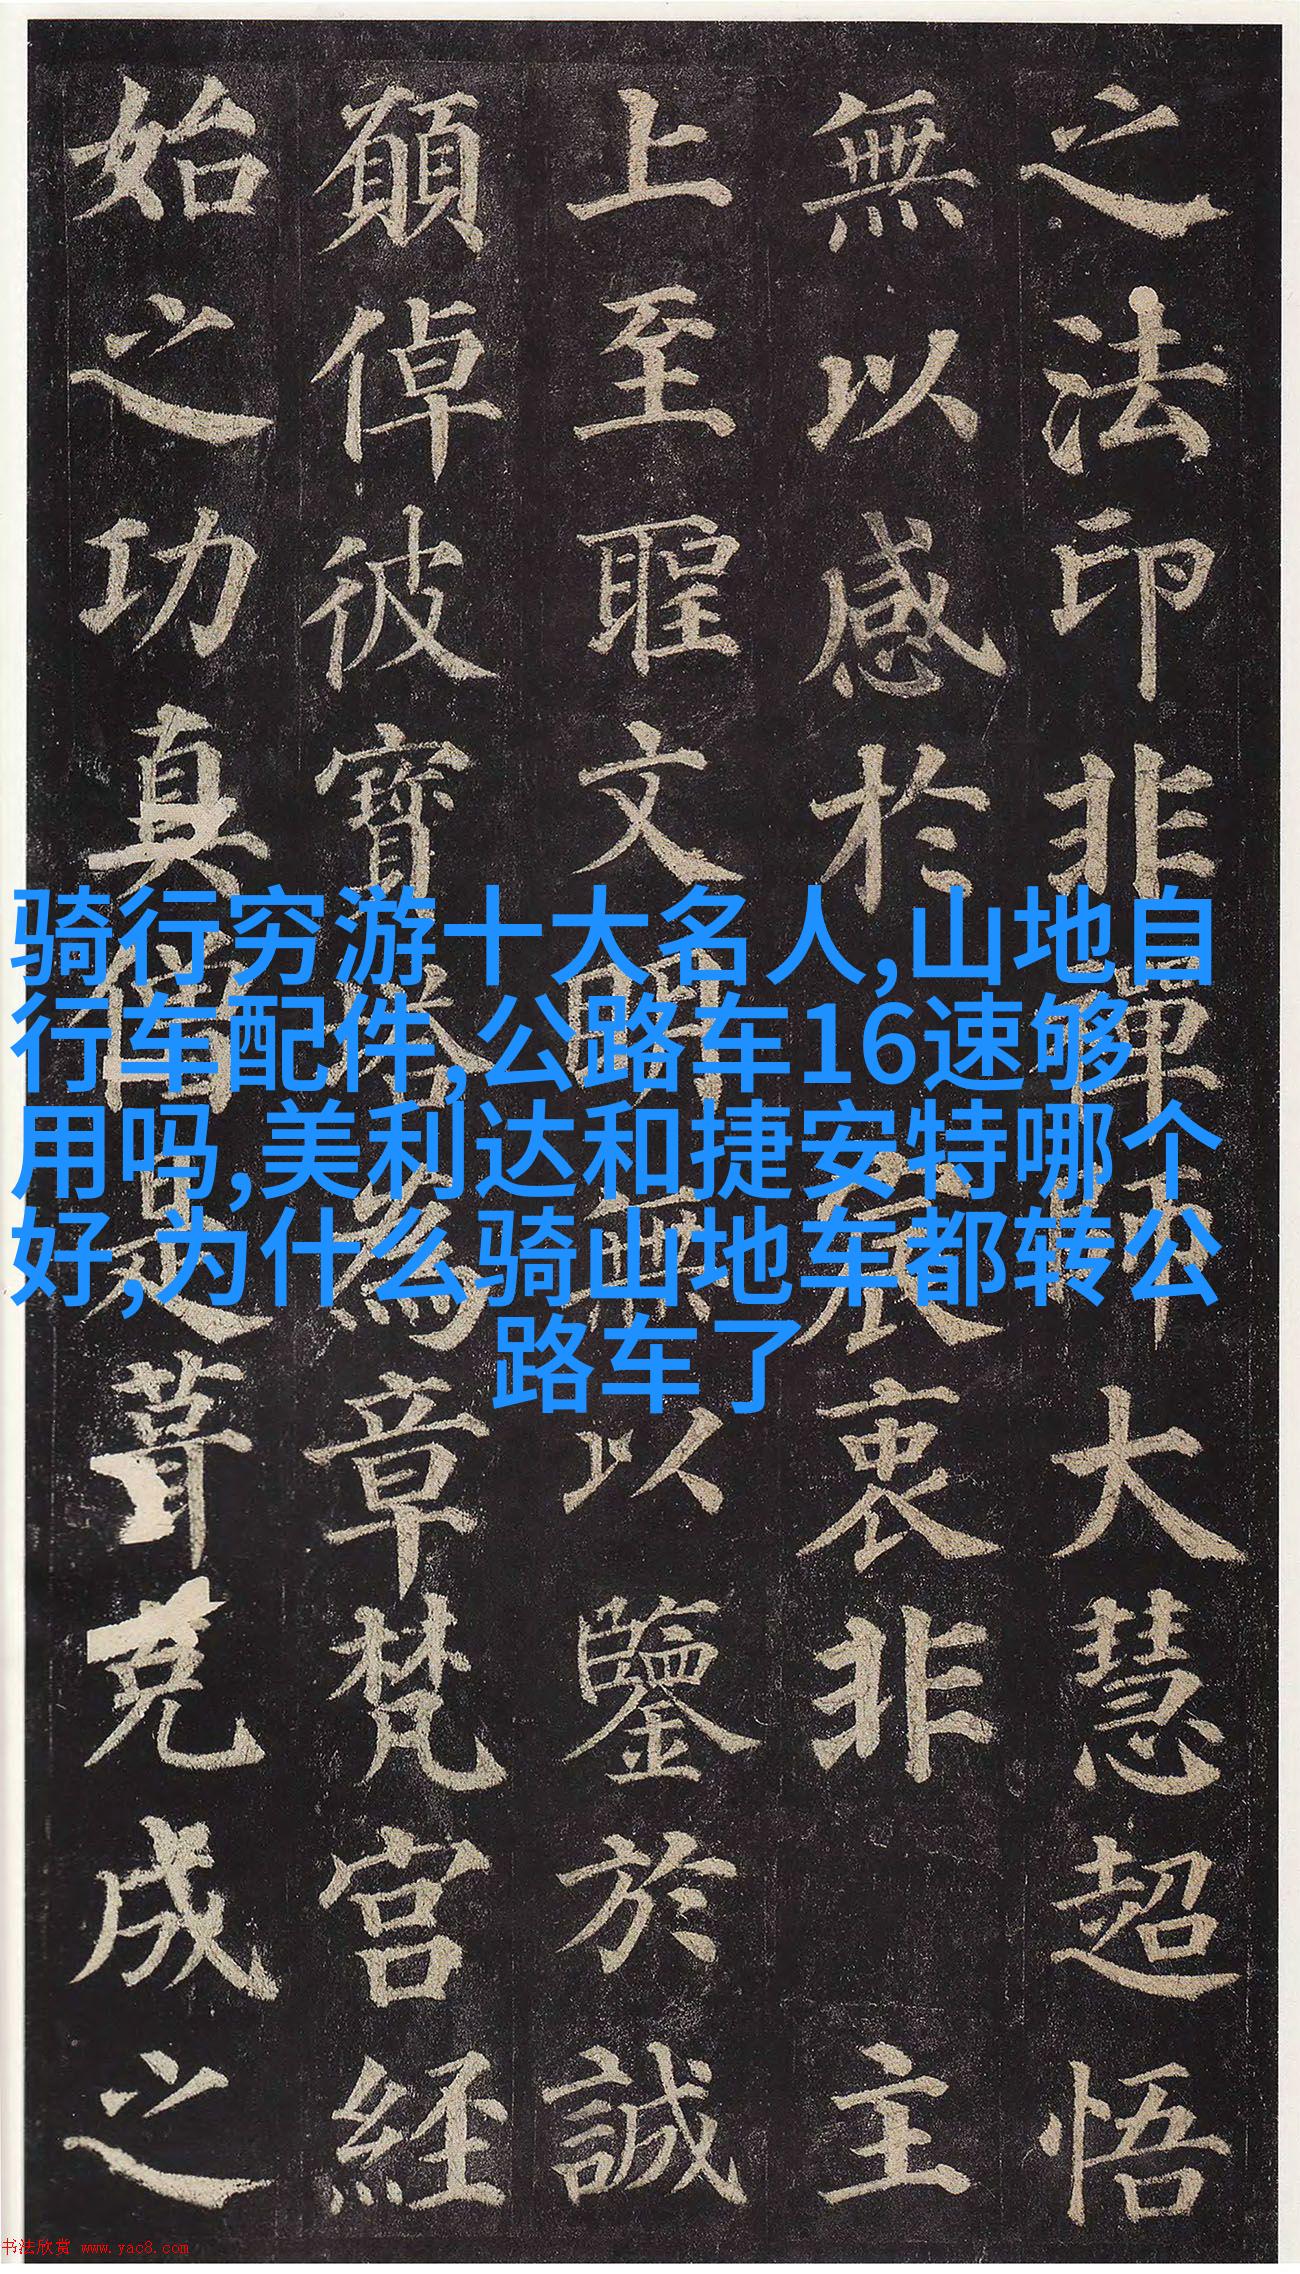 之法印非禪師大慧超悟
無以感於宸衷非主
上至聖文明無以鑒於誠
願倬彼寶塔為章梵宮經
始之功真僧是葺克成之
骑行穷游十大名人,山地自
行车配件,公路车16速够
用吗,美利达和捷安特哪个
好,为什么骑山地车都转公
路车了
书法欣赏 www.yac8.com